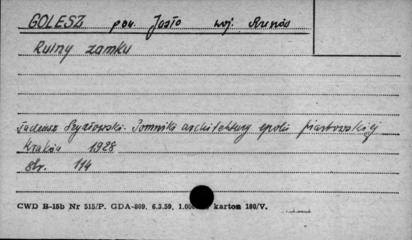 GOLESZ pow. Jasło woj. Rzeszów
Ruiny zamku
Tadeusz Szydłowski: Pomniki architektury epoki piastowskiej
Kraków 1928
Str. 114
CWD B-15b Nr 515/P. GDA-809. 6.3.59. 1.000 karton 180/V.